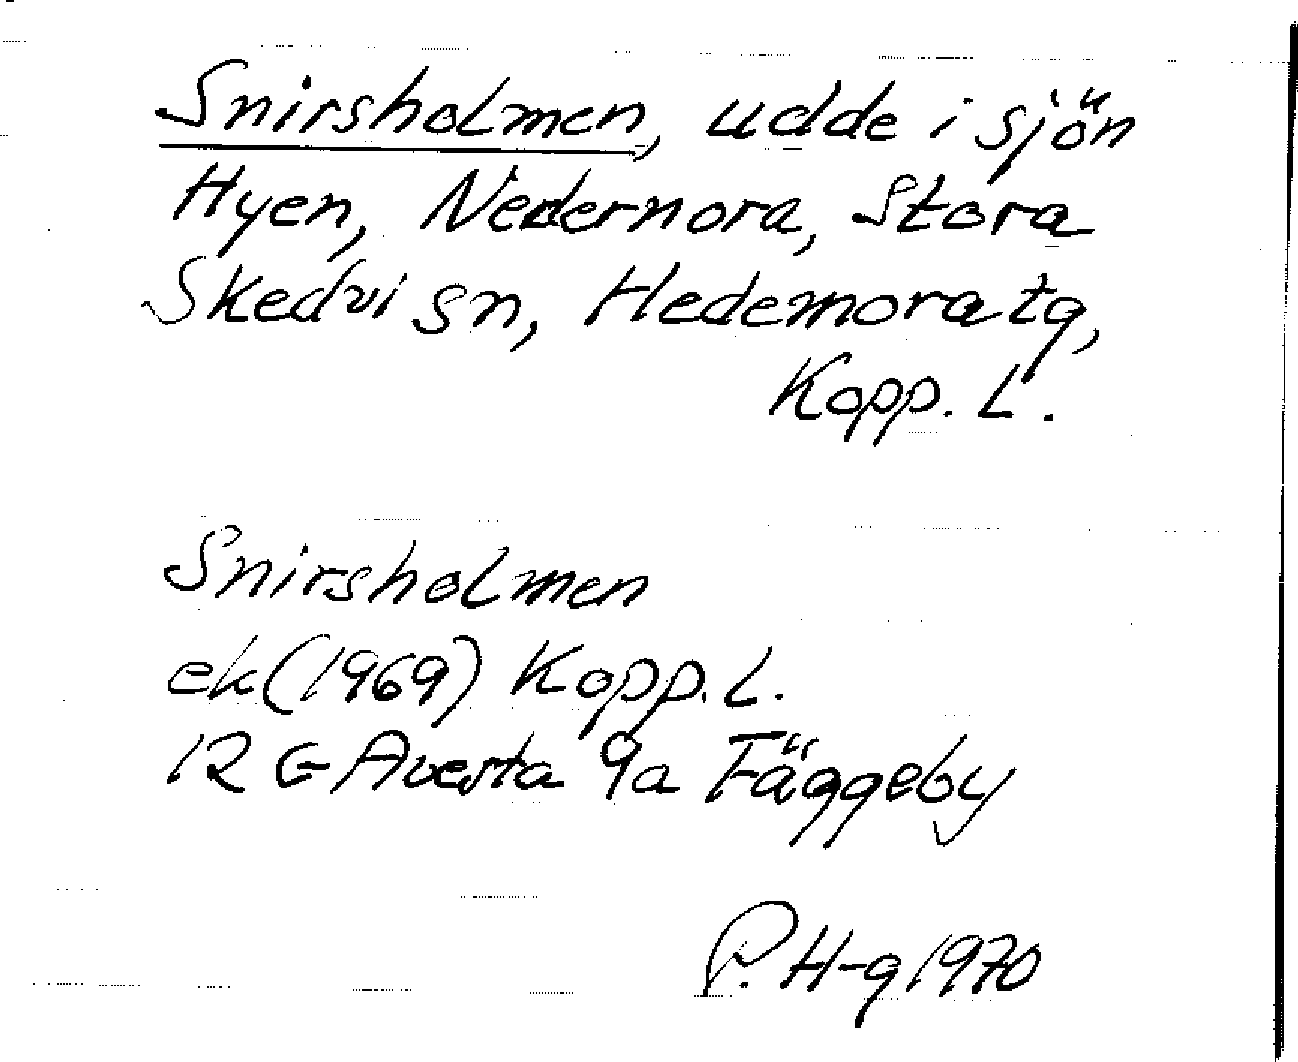 Snirsholmen, udde i sjön
Hyen, Nedernora, Stora
Skedvi sn, Hedemora tg,
Kopp. L.
Snirsholmen
ek (1969) Kopp. L.
12 G Avesta 9a Fäggeby
P. H-g 1970